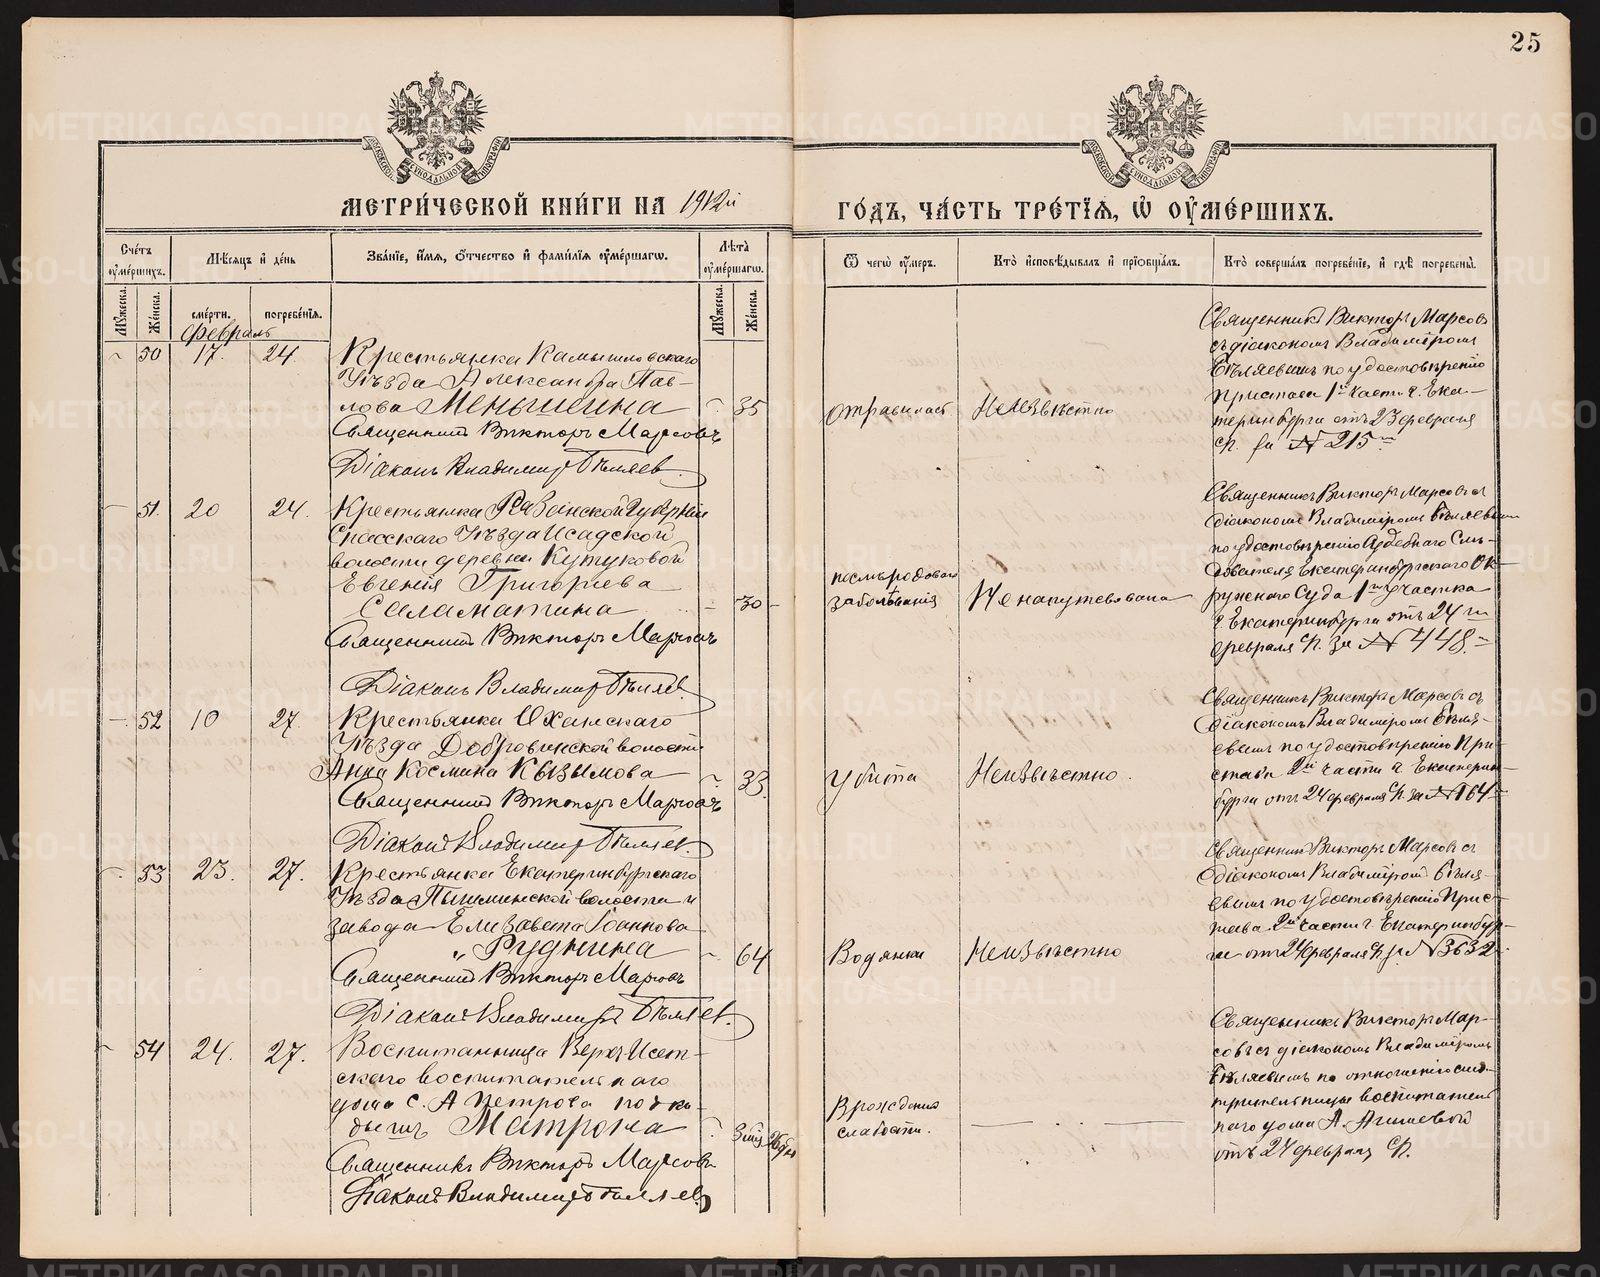 25
МЕТРИ́ЧЕСКОЙ КНИ́ГИ НА 1912й
ГО́ДЪ, ЧА́СТЬ ТРЕ́ТІѦ, Ѡ҆ ОУ҆МЕ́РШИХЪ.
Сче́тъ оу҆ме́ршихъ.
Мѣ́сяцъ и҆ де́нь
Зва́ніе, и҆́мѧ, ѻ҆́тчество и҆ фами́лїѧ оу҆ме́ршагѡ.
Лѣта̀ оу҆ме́ршагѡ.
Ѿ чегѡ̀ оу҆́меръ.
Кто̀ и҆сповѣ́дывалъ и҆ прїѡбща́лъ.
Кто̀ соверша́лъ погребе́нїе, и҆ гдѣ̀ погребены̀.
Мꙋ́жеска.
Же́нска.
сме́рти.
погребе́нїѧ.
Мꙋ́жеска.
Же́нска.
Февраль
50 17. 24.
Крестьянка Камышловскаго
Уѣзда Александра Пав-
лова Меньшенина 35
Священникъ Викторъ Марсовъ
Діаконъ Владимиръ Бѣляев
отравилась
Неизвѣстно
Священникъ Викторъ Марсовъ
съ діакономъ Владиміромъ
Бѣляевымъ по удостовѣренію
Пристава 1й части г. Ека-
теринбурга отъ 23 февраля
с/г. за № 215
51. 20 24.
Крестьянка Рязанской Губерніи
Спасскаго Уѣзда Исадской
волости деревни Кутуковой
Евгенія Григорьева
Саламатина 30
Священникъ Викторъ Марсовъ
Діаконъ Владимиръ Бѣляев
послѣродоваго
заболѣванія
Не напутствована
Священникъ Викторъ Марсовъ съ
діакономъ Владиміромъ Бѣляевымъ
по удостовѣренію Судебнаго Слѣ-
дователя Екатеринбургскаго Ок-
ружнаго Суда 1го участка
г Екатеринбурга отъ 24го
февраля с/г. за № 448.
52 10 27.
Крестьянка Оханскаго
Уѣзда волости
Анна Космина Кызылова 33.
Священникъ Викторъ Марсовъ
Діаконъ Владимиръ Бѣляев.
Убита
Неизвѣстно.
Священникъ Викторъ Марсовъ съ
Діакономъ Владиміромъ Бѣля-
евымъ по удостовѣренію При-
става 2й части г. Екатерин-
бурга отъ 24 февраля с/г. за № 164
53 23. 27.
Крестьянка Екатеринбургскаго
Уѣзда Пышминской волости и
завода Елизавета Іоаннова
„ Руднина 64
Священникъ Викторъ Марсовъ
Діаконъ Владимиръ Бѣляев.
Водянки
Неизвѣстно
Священникъ Викторъ Марсовъ съ
діакономъ Владиміромъ Бѣля-
евымъ по удостовѣренію Прис-
тава 2й части г. Екатеринбур-
га отъ 24 февраля с/г за № 3632.
54 24. 27.
Воспитанница Верхъ-Исет-
скаго воспитательнаго
дома С. А Петрова подки-
дышъ Матрона 3 мѣс
Священникъ Викторъ Марсовъ
Діаконъ Владимиръ Бѣляев
Врожденная
слабость.
Священникъ Викторъ Мар-
совъ съ діакономъ Владиміромъ
Бѣляевымъ по отношенію смо-
трительницы воспитатель-
наго дома А. Агишевой
отъ 24 февраля с/г.